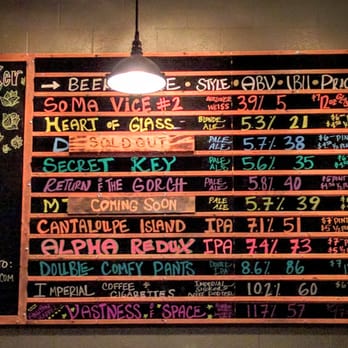 → BEER STYLE • ABV • IBU • PRICE
SOMA VICE #2 BERLINER WEISS 3.9% 5
HEART OF GLASS BLONDE ALE 5.3% 21
D SOLD OUT PALE ALE 5.7% 38
SECRET KEY PALE ALE 5.6% 35
RETURN OF THE GORCH PALE ALE 5.8% 40
MT COMING SOON PALE ALE 5.7% 39
CANTALOUPE ISLAND IPA 7.1% 51
ALPHA REDUX IPA 7.4% 73
DOUBLE COMFY PANTS DOUBLE IPA 8.6% 86
IMPERIAL COFFEE & CIGARETTES IMPERIAL SMOKED PORTER 10.2% 60
VASTNESS OF SPACE 11.7% 57